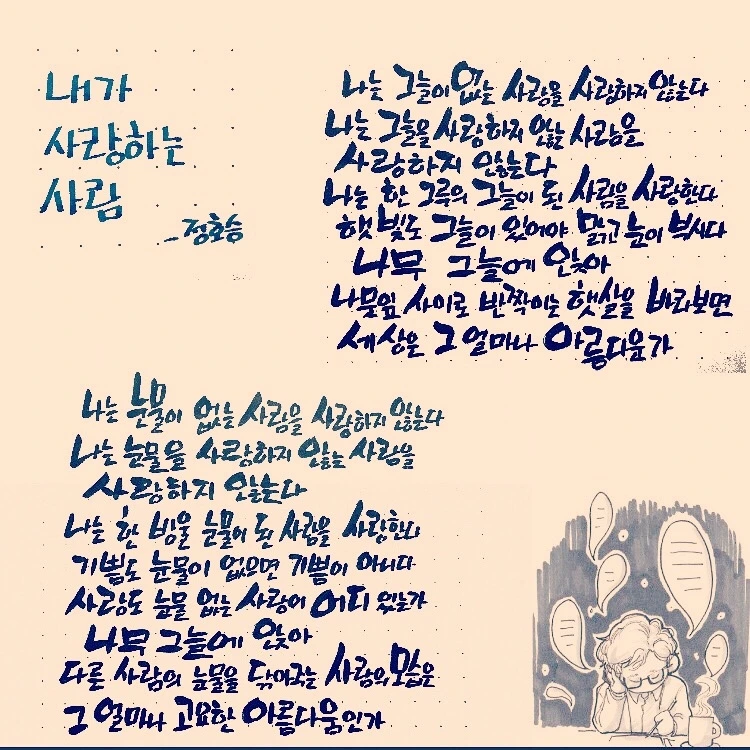 내가
사랑하는
사람
- 정호승
나는 그늘이 없는 사람을 사랑하지 않는다
나는 그늘을 사랑하지 않는 사람을
사랑하지 않는다
나는 한 그루의 그늘이 된 사람을 사랑한다
햇빛도 그늘이 있어야 맑고 눈이 부시다
나무 그늘에 앉아
나뭇잎 사이로 반짝이는 햇살을 바라보면
세상은 그 얼마나 아름다운가
나는 눈물이 없는 사람을 사랑하지 않는다
나는 눈물을 사랑하지 않는 사람을
사랑하지 않는다
나는 한 방울 눈물이 된 사람을 사랑한다
기쁨도 눈물이 없으면 기쁨이 아니다
사랑도 눈물 없는 사랑이 어디 있는가
나무 그늘에 앉아
다른 사람의 눈물을 닦아주는 사람의 모습은
그 얼마나 고요한 아름다움인가